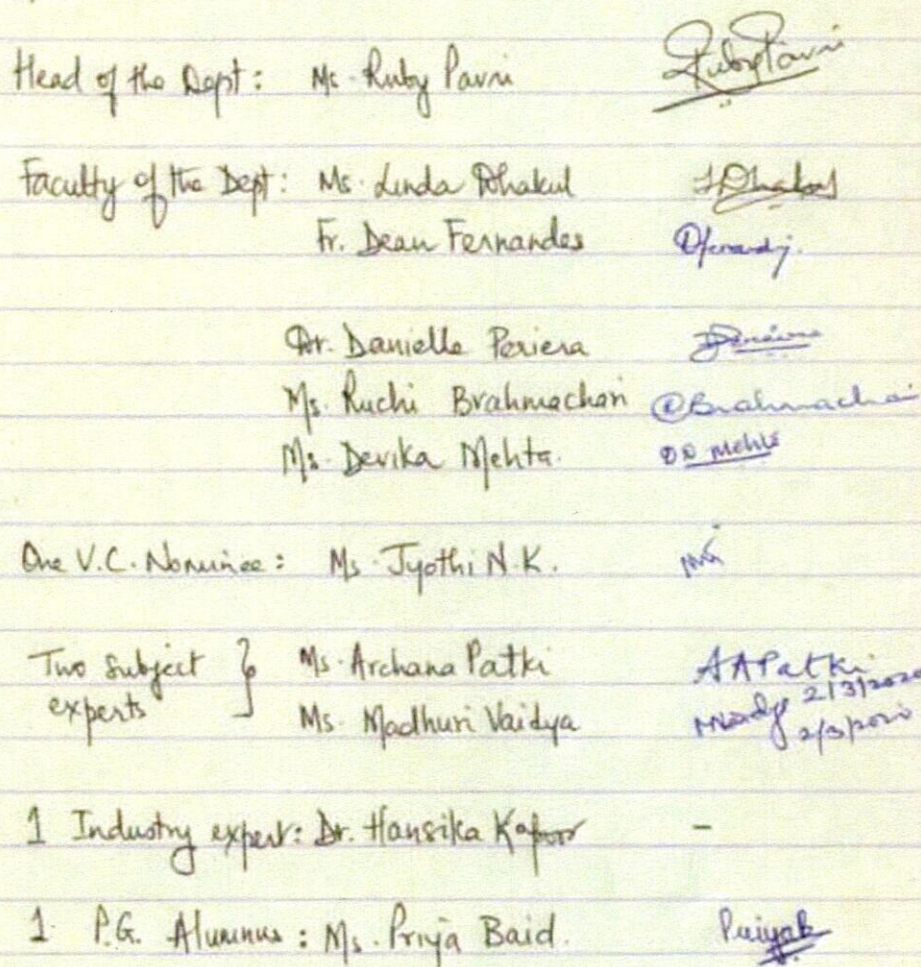 Head of the Dept: Ms. Ruby Pavri RubyPavri
Faculty of the Dept: Ms. Linda Dhakul LDhakul
Fr. Dean Fernandes
Dr. Danielle Periera
Ms. Ruchi Brahmachari RBrahmachari
Ms. Devika Mehta. Mehta
One V.C. Nominee: Ms. Jyothi N.K.
Two subject experts } Ms. Archana Patki AAPatki 2/3/2020
Ms. Madhuri Vaidya 2/3/2020
1 Industry expert: Dr. Hansika Kapoor -
1 P.G. Alumnus: Ms. Priya Baid.